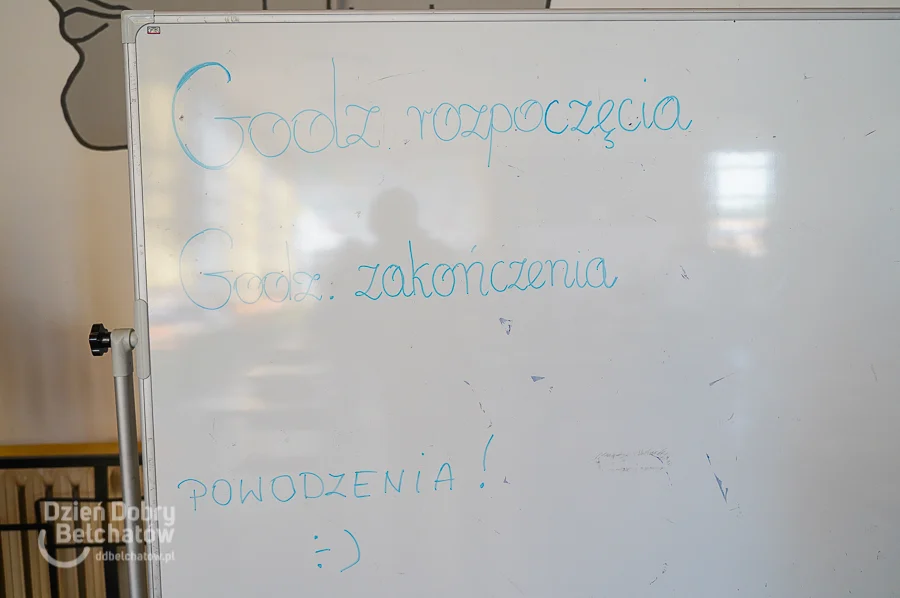 Godz rozpoczęcia
Godz. zakończenia
POWODZENIA!
:-)
Dzień Dobry
Bełchatów
ddbelchatow.pl